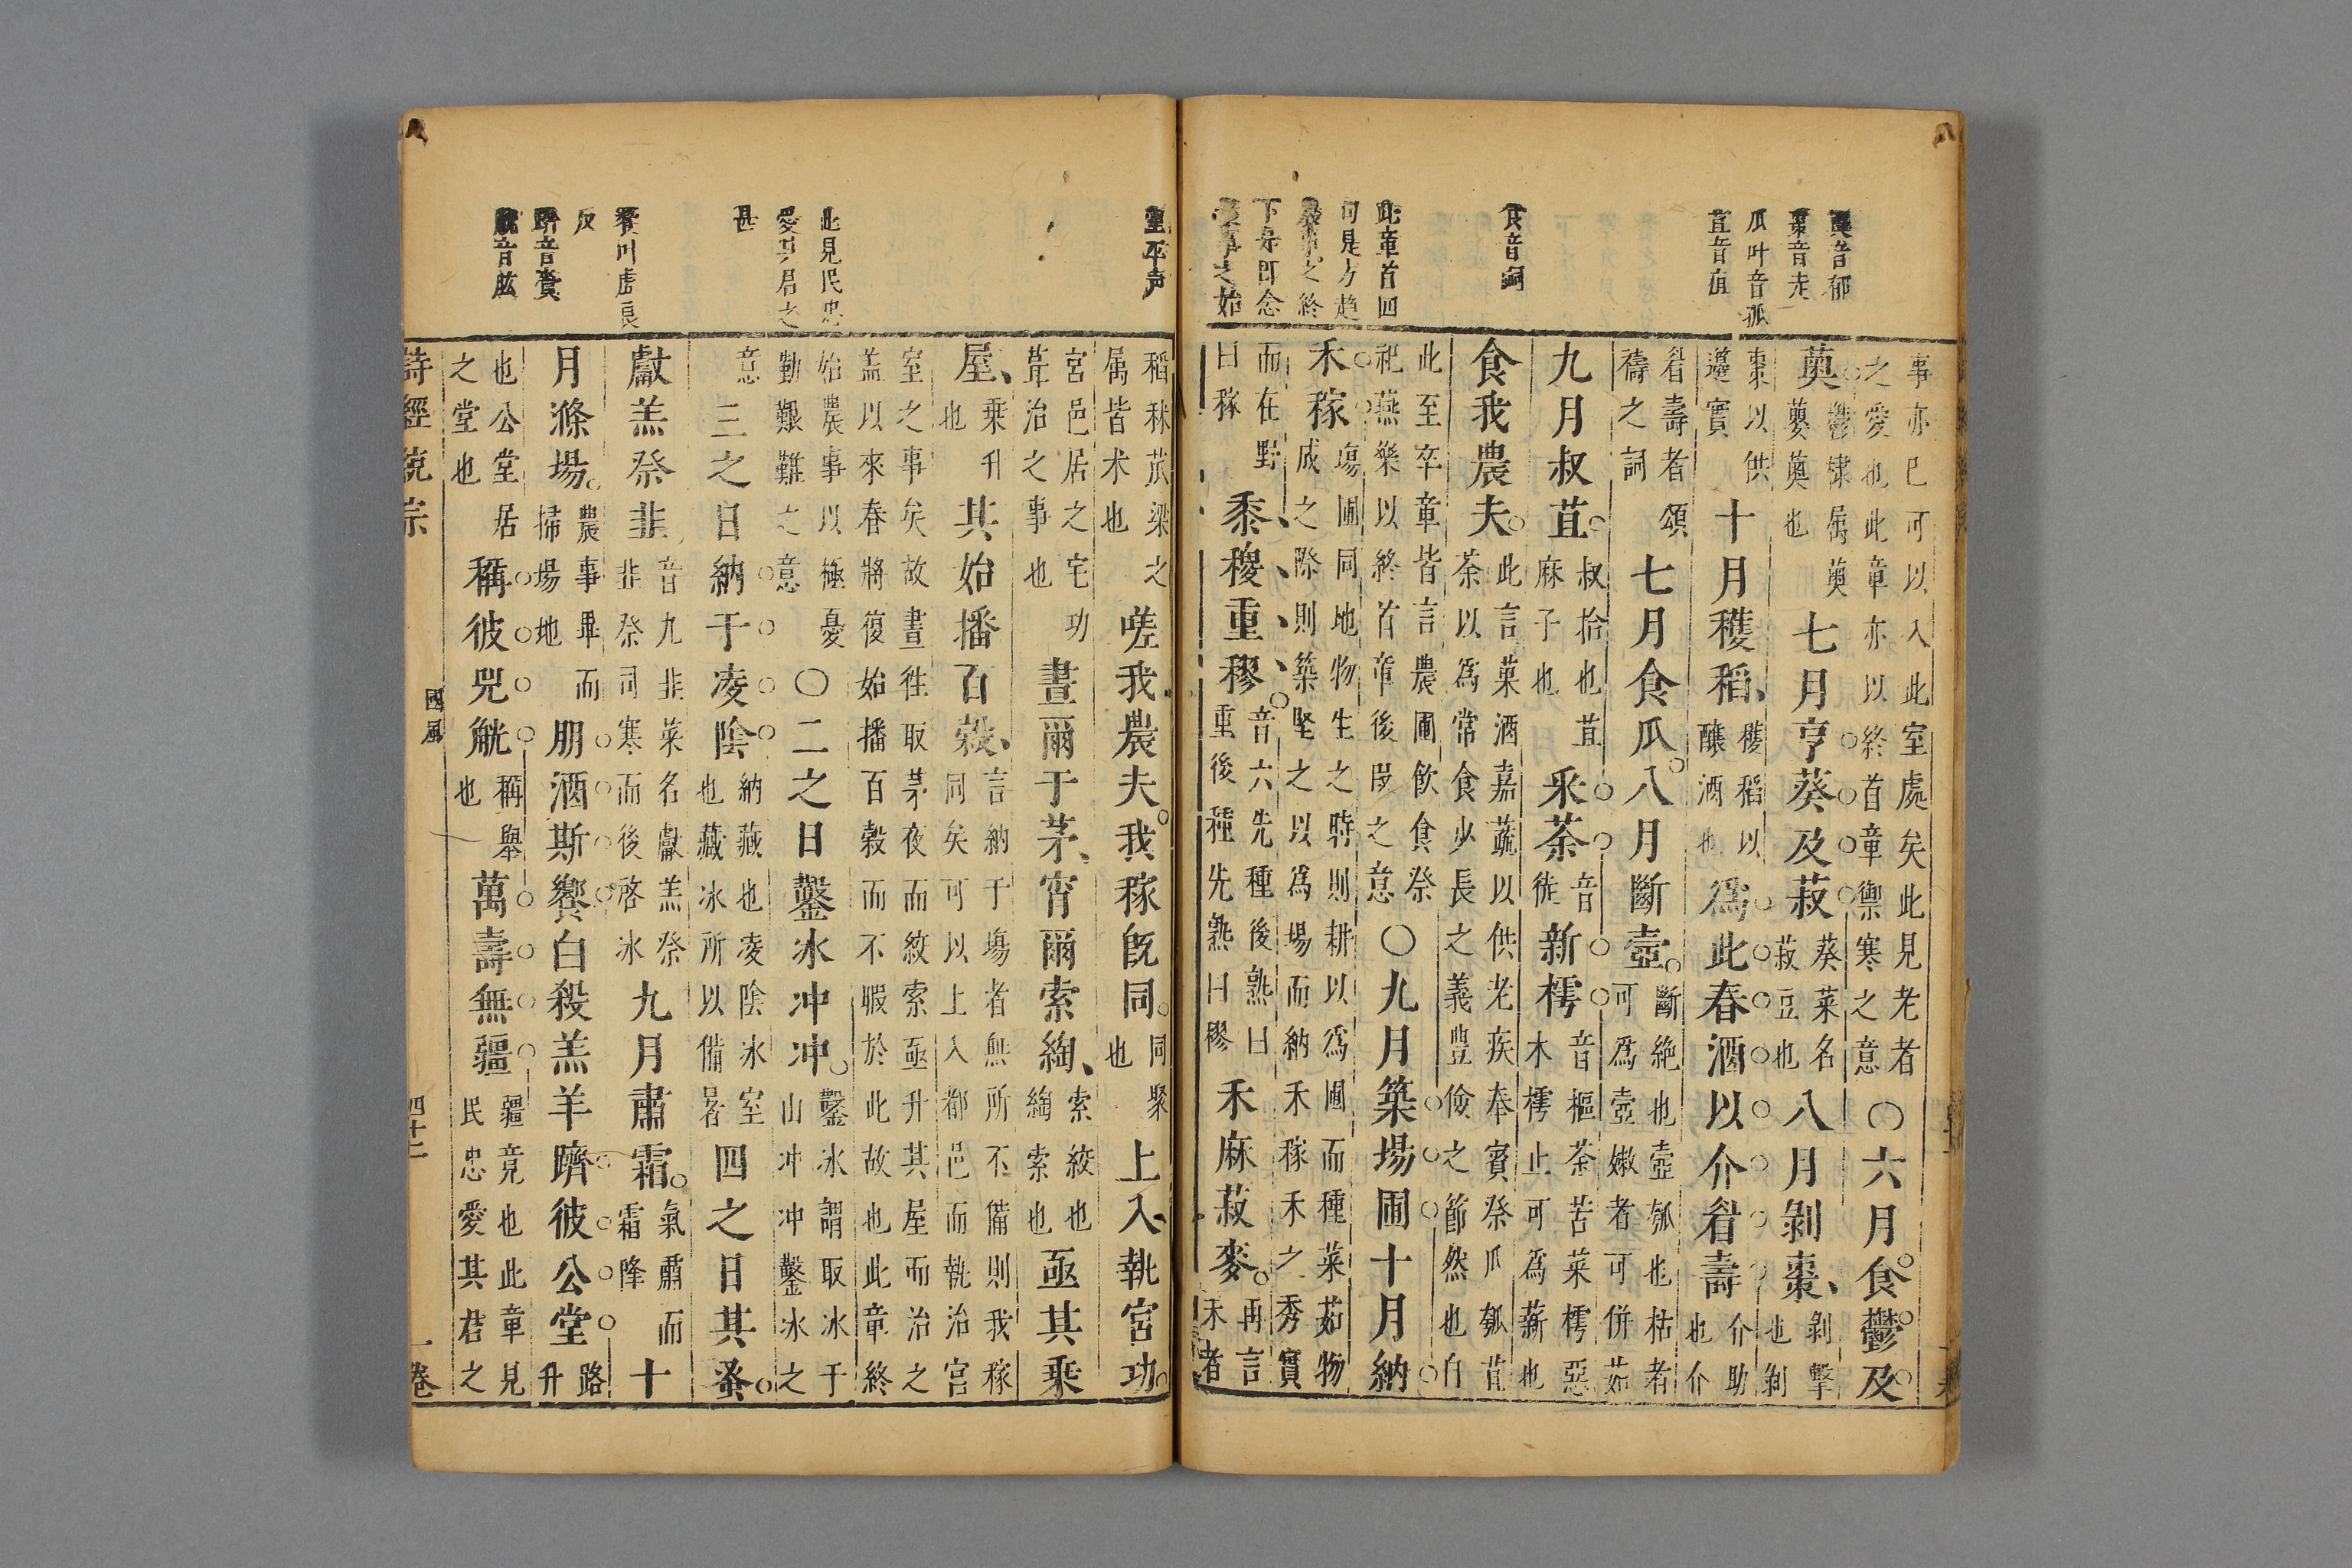 薁音郁
棗音走
瓜叶音孤
苴音疽
食音嗣
此章首四
句是方趋
農事之終
即念
農事之始
事亦已可以入此室處矣此見老者之愛也此章亦以終首章禦寒之意〇六月食鬱及
薁鬱棣屬薁蘡薁也七月亨葵及菽葵菜名菽豆也八月剝棗剝擊也剝
棗以供籩實十月穫稻穫稻以釀酒也為此春酒以介眉壽介助也介
眉壽者頌禱之詞七月食瓜八月斷壺斷絕也壺瓠也枯者可為壺嫩者可併茹
九月叔苴叔拾也苴麻子也采荼音徒新樗音樞荼苦菜樗惡木樗止可為薪也
食我農夫此言菓酒嘉蔬以供老疾奉賓祭瓜瓠苴荼以為常食少長之義豊儉之節然也自
此至卒章皆言農圃飲食祭祀燕樂以終首章後叚之意〇九月築場圃十月納
禾稼塲圃同地物生之時則耕以為圃而種菜茹物成之際則築坚之以為場而納禾稼禾之秀實
而在野曰稼黍稷重穋音六先種後熟曰重後種先熟曰穋禾麻菽麥再言禾者
重平声
此見民忠
愛其君之
甚
饗叶虚良
反
躋音賫
觥音肱
稻秫苽梁之属皆禾也嗟我農夫我稼旣同同聚也上入執宮功
宮邑居之宅功葺治之事也晝爾于茅宵爾索綯索絞也綯索也亟其乘
屋乘升也其始播百穀言納于塲者無所不備則我稼同矣可以上入都邑而執治宮
室之事矣故晝徃取茅夜而絞索亟升其屋而治之盖以來春將復始播百穀而不暇於此故也此章終
始農事以極憂勤艱難之意〇二之日鑿冰冲冲鑿冰謂取冰于山冲冲鑿冰之
意三之日納于凌陰納藏也凌陰冰室也藏冰所以備暑四之日其蚤
獻羔祭韭音九韭菜名獻羔祭韭祭司寒而後啓冰九月肅霜氣肅而霜降十
月滌場農事畢而掃場地朋酒斯饗曰殺羔羊躋彼公堂躋升
也公堂君之堂也稱彼兕觥稱舉也萬壽無疆疆竟也此章見民忠愛其君之
詩經統宗
國風
四十二
一卷